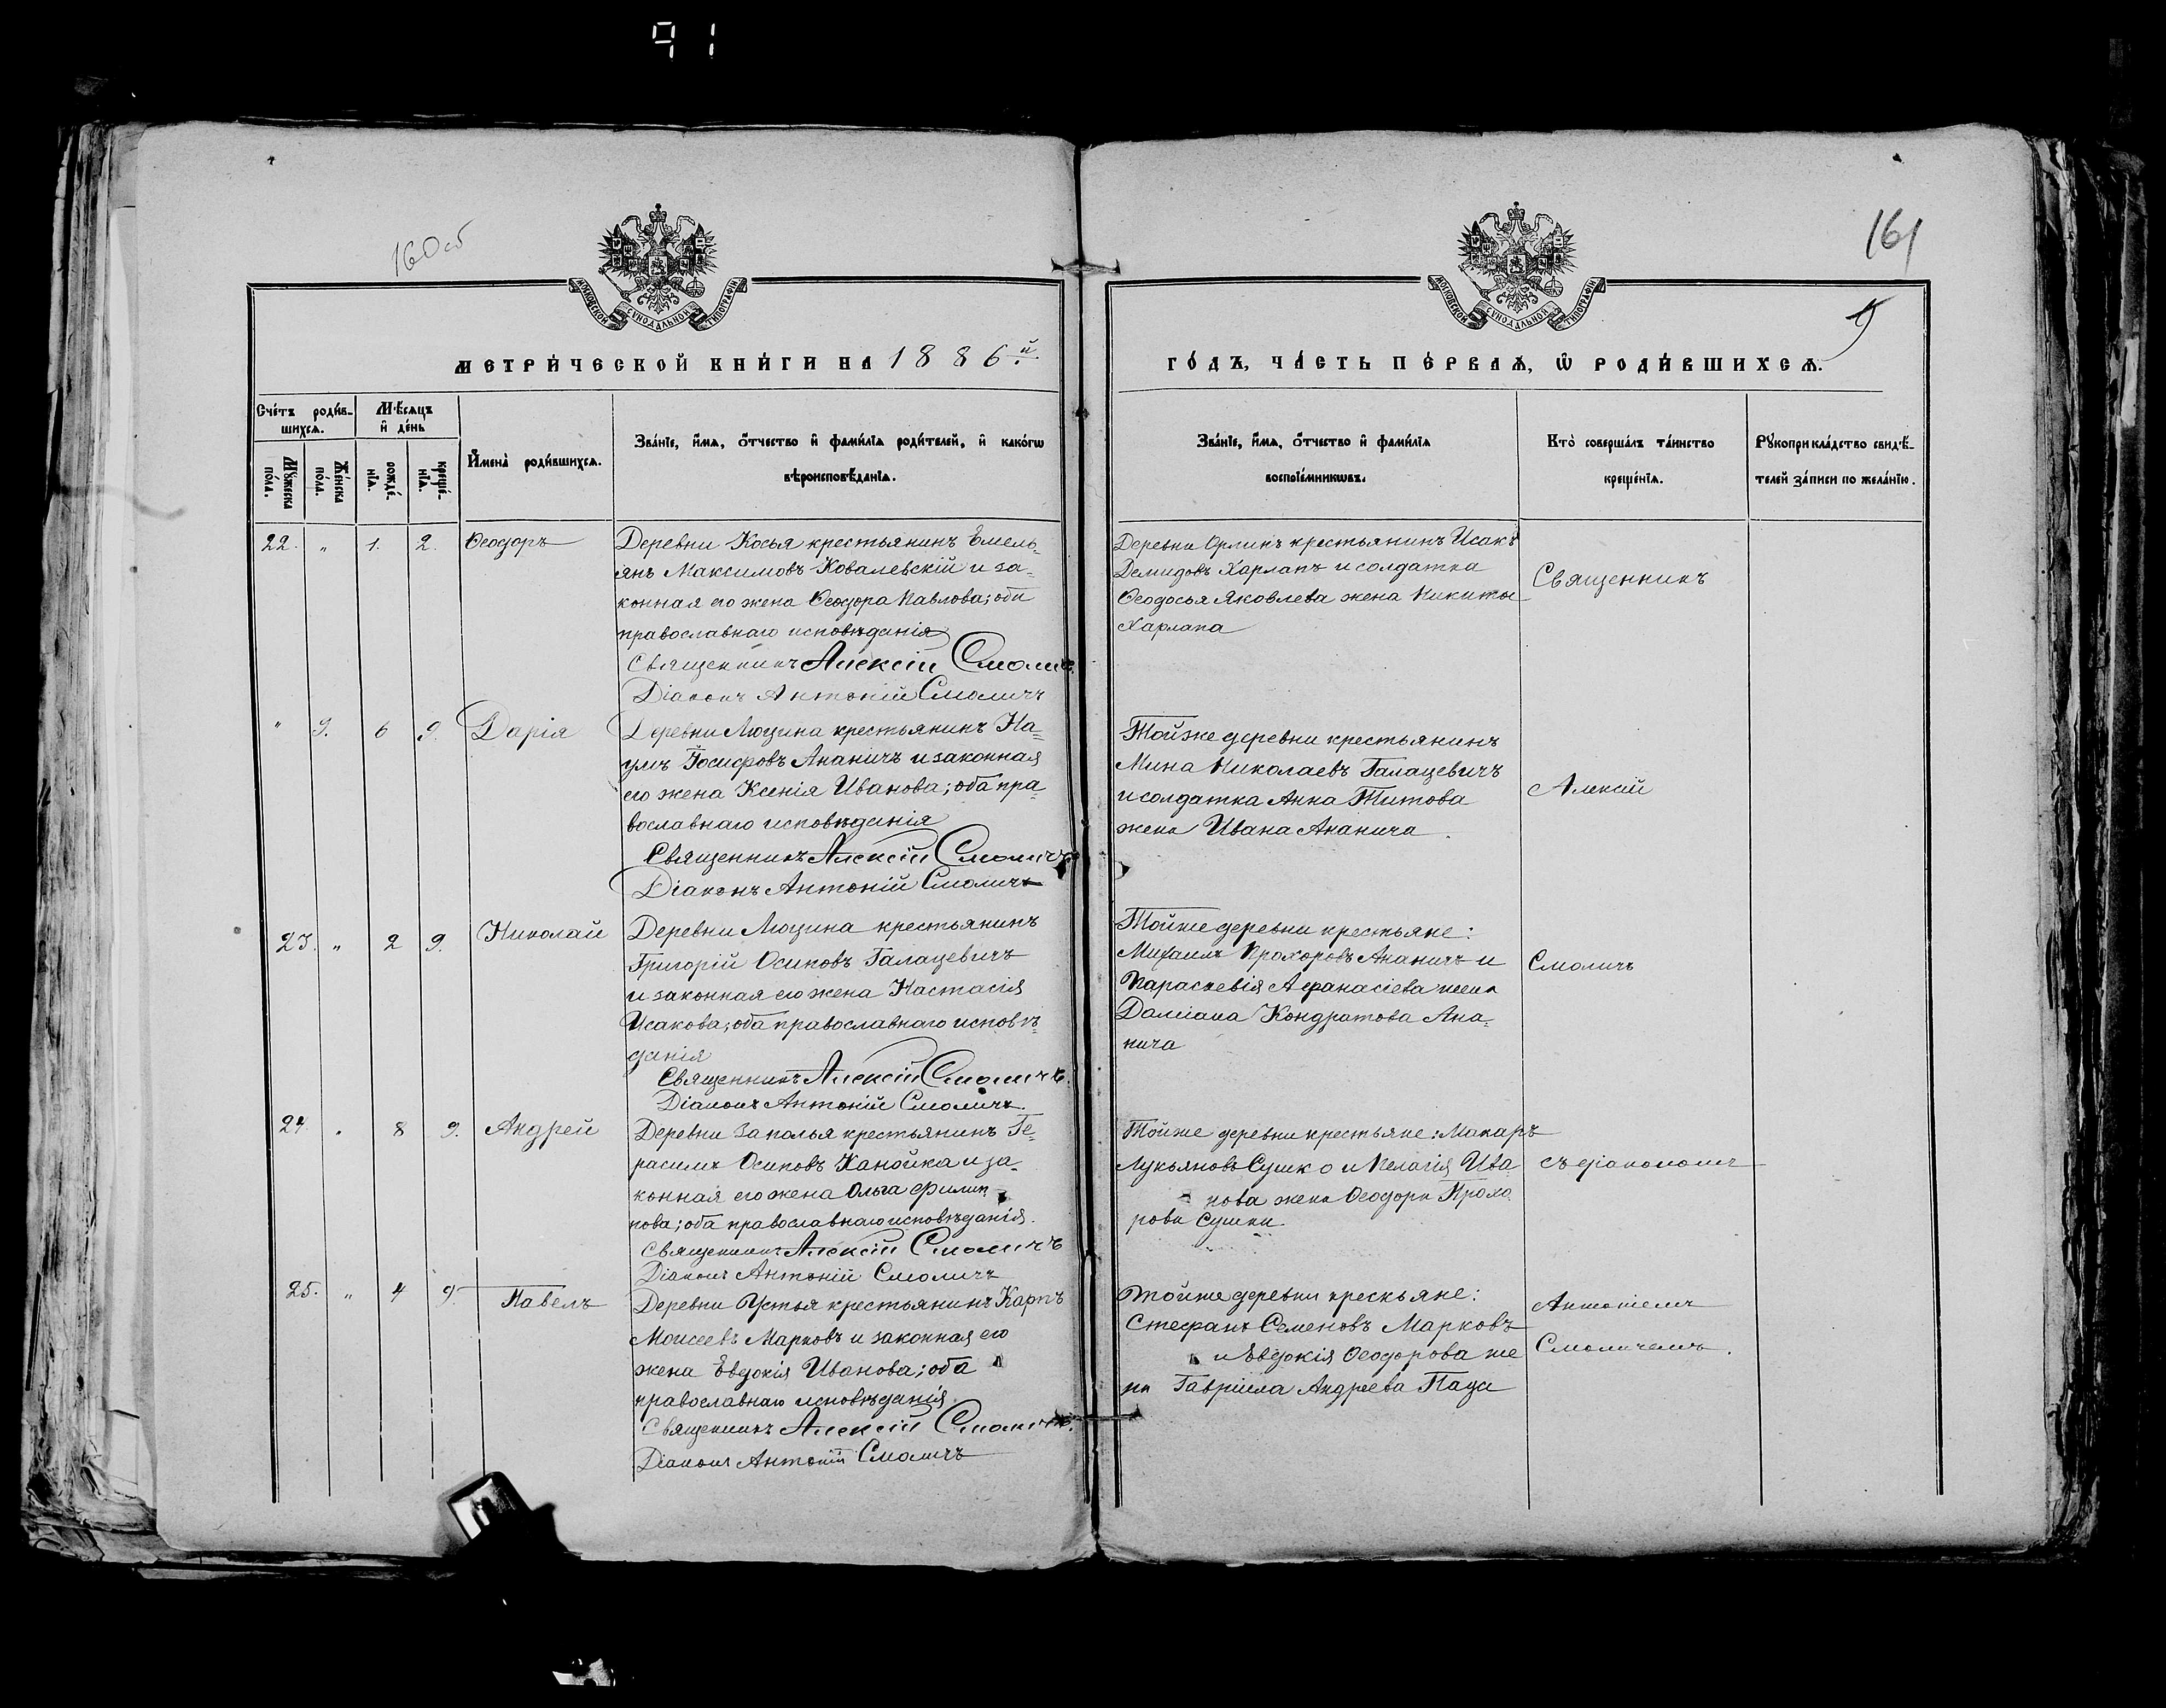 91
160об
161
9
МОСКОВСКОЙ СѴНОДАЛЬНОЙ ТИПОГРАФІИ
МОСКОВСКОЙ СѴНОДАЛЬНОЙ ТИПОГРАФІИ
МЕТРИ́ЧЕСКОЙ КНИ́ГИ НА 1886й.
ГО́ДЪ, ЧА́СТЬ ПЕ́РВАѦ, Ѽ РОДИ́ВШИХСѦ.
Сче́тъ роди́в-
шихсѧ.
Мѣ́сѧцъ
и҆ де́нь
Мꙋ́жеска
по́ла.
Же́нска
по́ла.
рожде́-
нїѧ.
креще́-
нїѧ.
И҆мена̀ роди́вшихсѧ.
Зва́нїе, и҆́мѧ, ѻ҆́тчество и҆ фами́лїѧ роди́телей, и҆ како́гѡ
вѣроисповѣ́данїѧ.
Зва́нїе, и҆́мѧ, ѻ҆́тчество и҆ фами́лїѧ
воспрїе́мникѡвъ.
Кто̀ соверша́лъ та́инство
креще́нїѧ.
Рꙋкоприкла́дство свидѣ́-
телей за́писи по жела́нїю.
22. „ 1. 2. Ѳеодоръ
Деревни Косья крестьянинъ Емель-
янъ Максимовъ Ковалевскій и за-
конная его жена Ѳеодора Павлова; оби
православнаго исповѣданія
Священникъ Алексій Смоличъ
Діаконъ Антоній Смоличъ
Деревни Орлинъ крестьянинъ Исакъ
Демидовъ Харлапъ и солдатка
Ѳеодосья Яковлева жена Никиты
Харлапа
Священникъ
„ 9. 6 9. Дарія
Деревни Люцина крестьянинъ На-
умъ Іосифовъ Ананичъ и законная
его жена Ксенія Иванова; оба пра-
вославнаго исповѣданія
Священникъ Алексій Смоличъ
Діаконъ Антоній Смоличъ
Тойже деревни крестьянинъ
Мина Николаевъ Галацевичъ
и солдатка Анна Титова
жена Ивана Ананича
Алексій
23. „ 2 9. Николай
Деревни Люцина крестьянинъ
Григорій Осиповъ Галацевичъ
и законная его жена Настасія
Исакова; оба православнаго исповѣ-
данія
Священникъ Алексій Смоличъ.
Діаконъ Антоній Смоличъ.
Тойже деревни крестьяне:
Михаилъ Прохоровъ Ананичъ и
Параскевія Афанасіева жена
Даміана Кондратова Ана-
нича
Смоличъ
24. „ 8 9. Андрей
Деревни Заполья крестьянинъ Ге-
расимъ Осиповъ Канойка и за-
конная его жена Ольга Филип-
пова; оба православнаго исповѣданія.
Священникъ Алексій Смоличъ
Діаконъ Антоній Смоличъ
Тойже деревни крестьяне: Макаръ
Лукьяновъ Сушко и Пелагія Ива
нова жена Ѳеодора Прохо
рова Сушки.
съ діакономъ
25. „ 4 9. Павелъ
Деревни Устья крестьянинъ Карпъ
Моисеевъ Марковъ и законная его
жена Евдокія Иванова; оба
православнаго исповѣданія.
Священникъ Алексій Смоличъ.
Діаконъ Антоній Смоличъ
Тойже деревни крескьяне:
Стефанъ Семеновъ Марковъ
и Евдокія Ѳеодорова же
на Гавріила Андреева Паца
Антоніемъ
Смоличемъ.